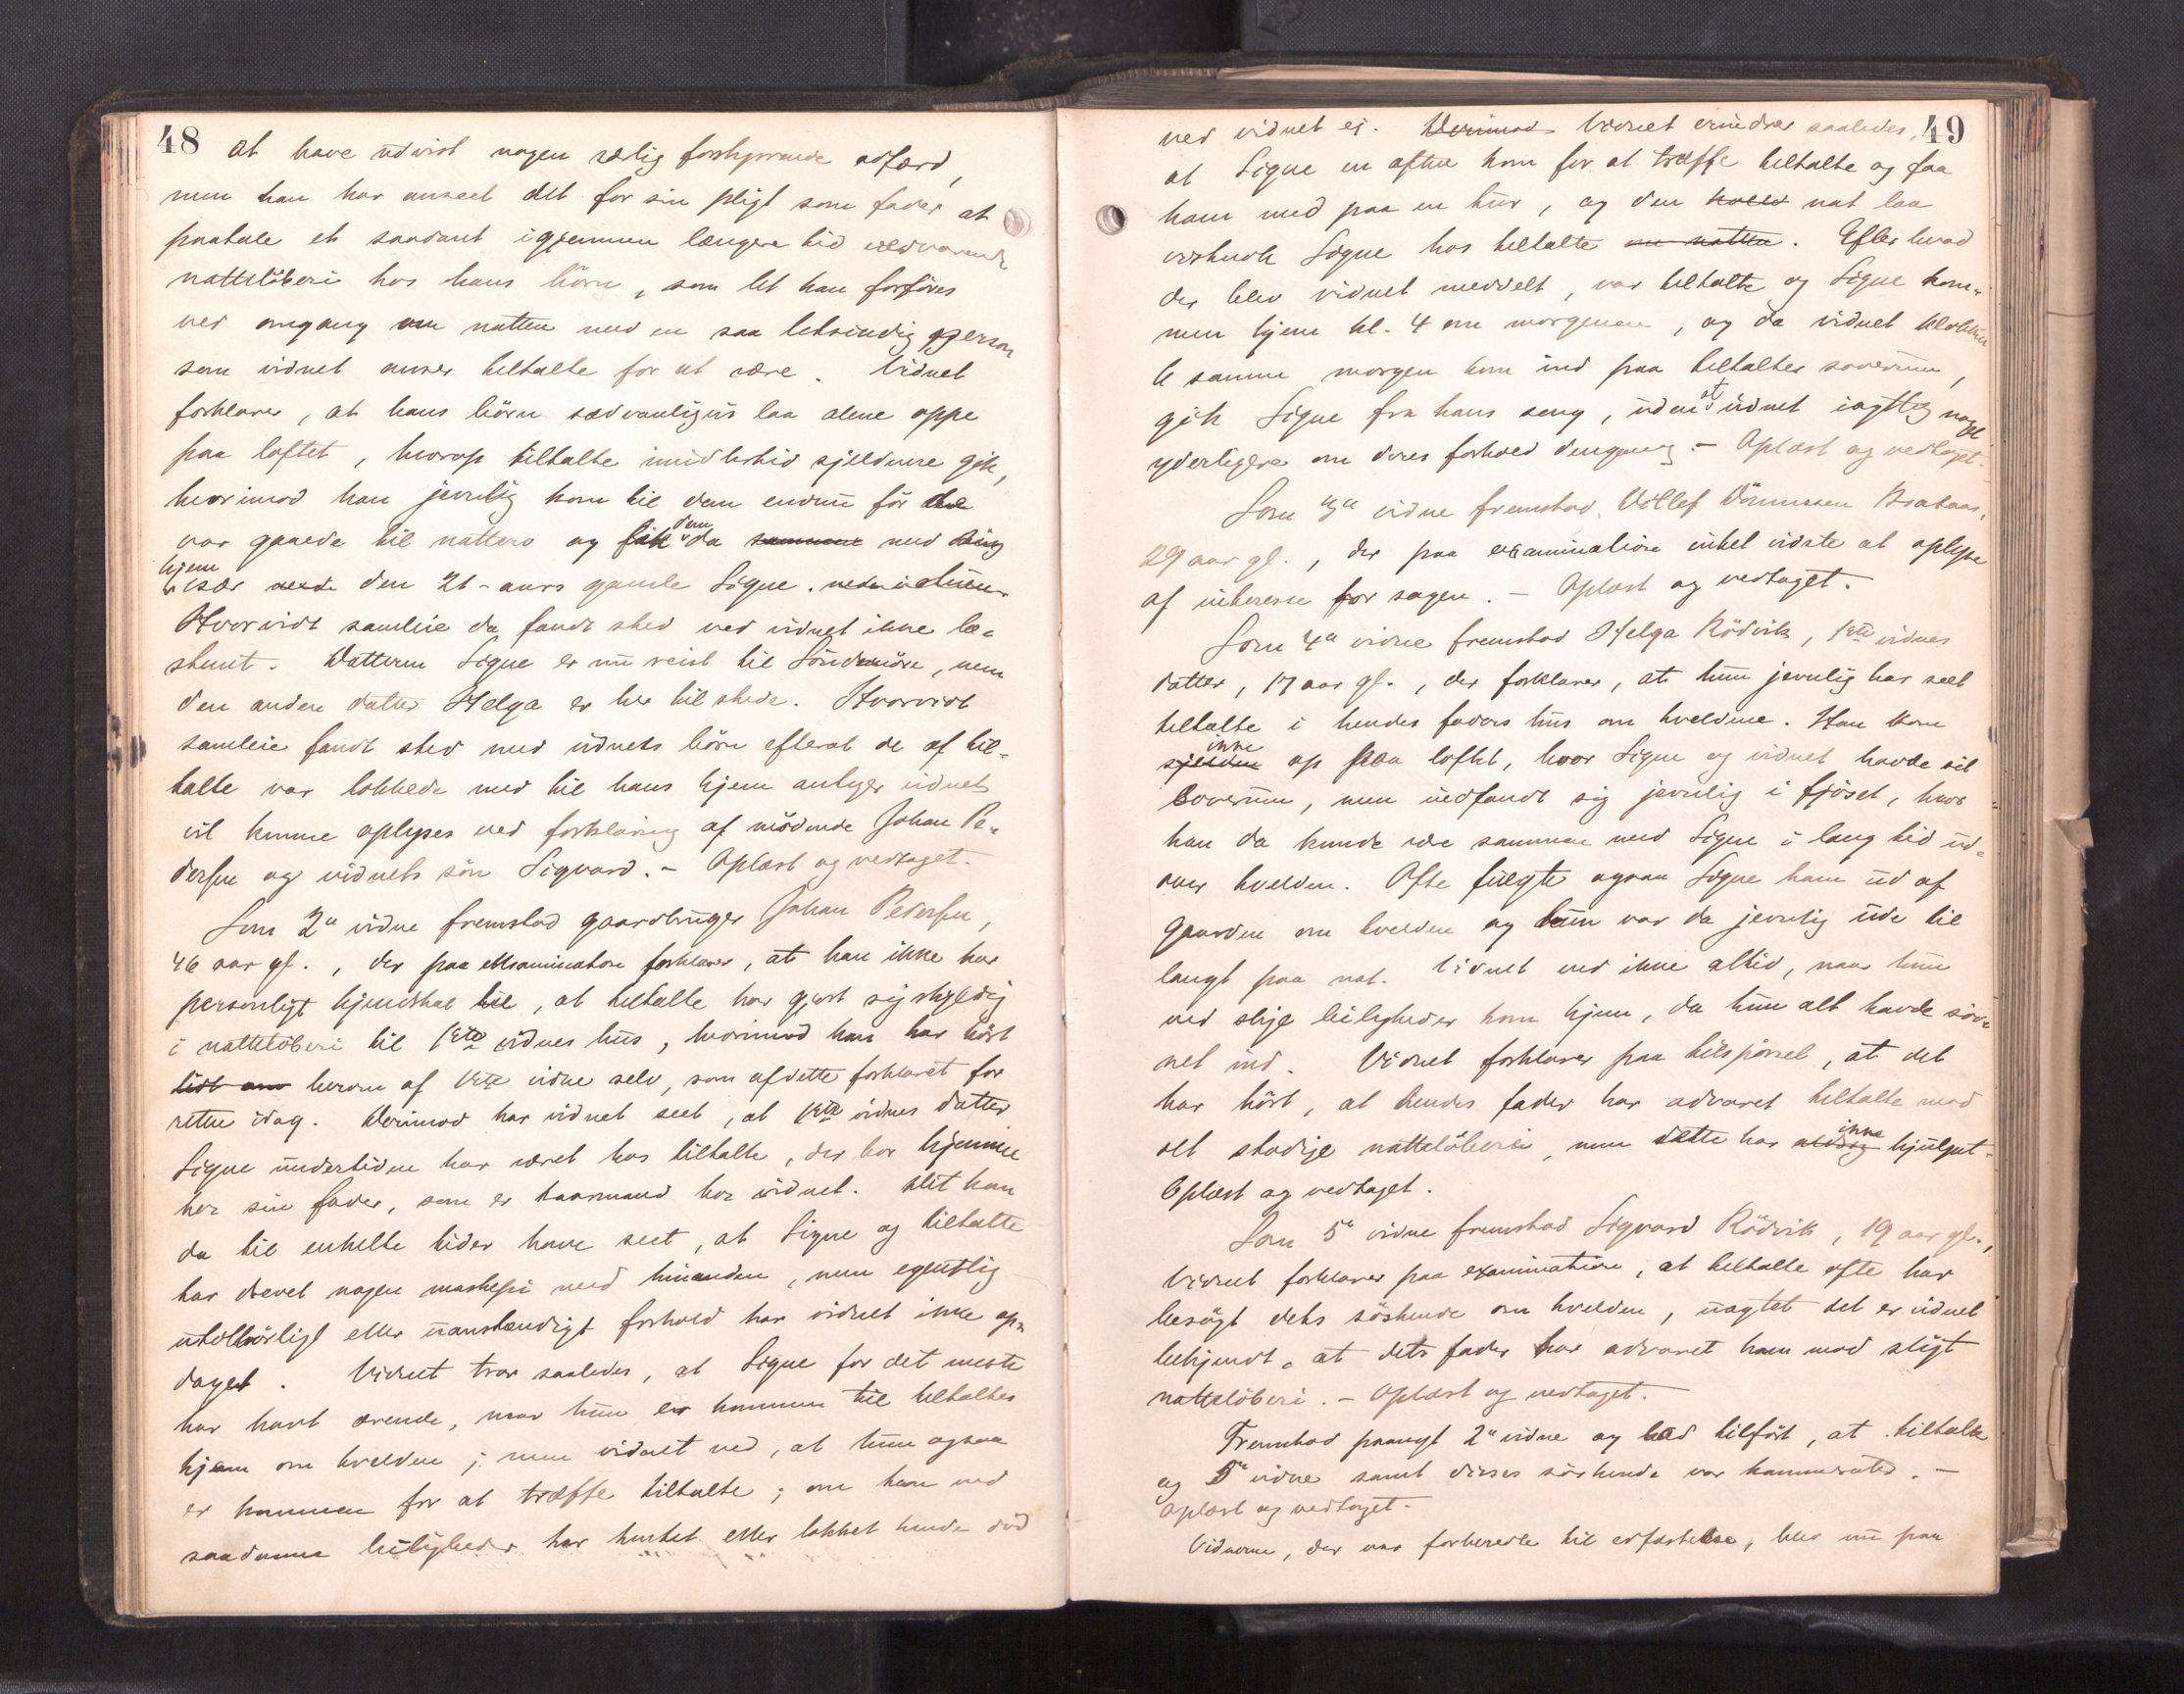 48
at have udvist nogen særlig forstyrrende adfærd,
men han har anseet det for sin pligt som fader at
paatale et saadant igjennem længere tid vedvarende
natteløberi hos hans børn, som let kan forføres
ved omgang om natten med en saa letsindig person
som vidnet anser tiltalte for at være. Vidnet
forklarer, at hans børn sædvanligvis laa alene oppe
paa loftet, hvorop tiltalte imidlertid sjeldnere gik,
hvorimod han jevnlig kom til dem endnu før de
var gaaede til nattero og fik dem da sammen med sig
hjem
især med den 21-aars gamle Signe.
Hvorvidt samleie da fandt sted ved vidnet ikke be-
stemt. Datteren Signe er nu reist til Søndmøre, men
den anden datter Helga er her tilstede. Hvorvidt
samleie fandt sted med vidnets børn efterat de af til-
talte var lokkede med til hans hjem antager vidnet
vil kunne oplyses ved forklaring af mødende Johan Pe-
dersen og vidnets søn Sigvard. - Oplæst og vedtaget.
Som 2et vidne fremstod gaardbruger Johan Pedersen,
46 aar gl., der paa examination forklarer, at han ikke har
personligt kjendskab til, at tiltalte har gjort sig skyldig
i natteløberi til 1ste vidnes hus, hvorimod han har hørt
lidt om herom af 1ste vidne selv, som af dette forklaret for
retten idag. Derimod har vidnet seet, at 1ste vidnes datter
Signe undertiden har været hos tiltalte, der bor hjemme
hos sin fader, som er kaarmand hos vidnet. Alt kan
da til enkelte tider have seet, at Signe og tiltalte
har drevet nogen maskepi med hinanden, men egentlig
utilbørligt eller uanstændigt forhold har vidnet ikke op-
daget. Vidnet tror saaledes, at Signe for det meste
har havt ærende, naar hun er kommen til tiltaltes
hjem om kvelden; men vidnet ved, at hun ogsaa
er kommen for at træffe tiltalte; om han ved
saadanne leiligheder har hentet eller lokket hende did
49
ved vidnet ei. Derimod Vidnet erindrer saaledes,
at Signe en aften kom for at træffe tiltalte og faa
ham med paa en tur, og den nat laa
Signe hos tiltalte om natten. Efter hvad
der blev vidnet meddelt, var tiltalte og Signe kom-
men hjem kl. 4 om morgenen, og da vidnet klokken
6 samme morgen kom ind paa tiltaltes soverum,
gik Signe fra hans seng, uden at vidnet iagttog noget
yderligere om deres forhold dengang. - Oplæst og vedtaget.
Som 3et vidne fremstod Ditlef Dønnesen Brataas,
29 aar gl., der paa examination intet vidste at oplyse
af interesse for sagen. - Oplæst og vedtaget.
Som 4et vidne fremstod Helga Rødvik, 1ste vidnes
datter, 17 aar gl., der forklarer, at hun jevnlig har seet
tiltalte i hendes faders hus om kveldene. Han kom
ikke
sjelden op paa loftet, hvor Signe og vidnet havde sit
soverum, men indfandt sig jevnlig i fjøset, hvor
han da kunde være sammen med Signe i lang tid ud-
over kvelden. Ofte fulgte ogsaa Signe ham ud af
gaarden om kvelden og hun var da jevnlig ude til
langt paa nat. Vidnet ved ikke altid, naar hun
ved slige leiligheder kom hjem, da hun alt havde sov-
net ind. Vidnet forklarer paa tilspørsel, at det
har hørt, at hendes fader har advaret tiltalte mod
det stadige natteløberi, men dette har aldrig ikke hjulpet. -
Oplæst og vedtaget.
Som 5et vidne fremstod Sigvard Rødvik, 19 aar gl.,
Vidnet forklarer paa examination, at tiltalte ofte har
besøgt dets søskende om kvelden, uagtet det er vidnet
bekjendt, at dets fader har advaret ham mod sligt
natteløberi. - Oplæst og vedtaget.
Fremstod paanyt 2et vidne og lod tilført, at tiltalte
og 5et vidne samt dennes søskende var kammerater. -
Oplæst og vedtaget.
Vidnerne, der var forberedte til edfæstelse, blev nu paa